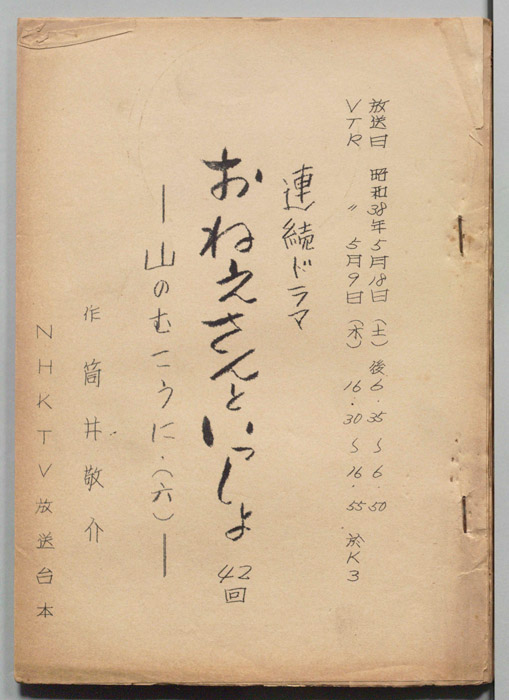 放送日 昭和38年5月18日(土)後6.35〜6.50
VTR 〃 5月9日(木)16.30〜16.55 於K3
連続ドラマ
おねえさんといっしょ 42回
―山のむこうに・(六)―
作 筒井敬介
NHKTV放送台本